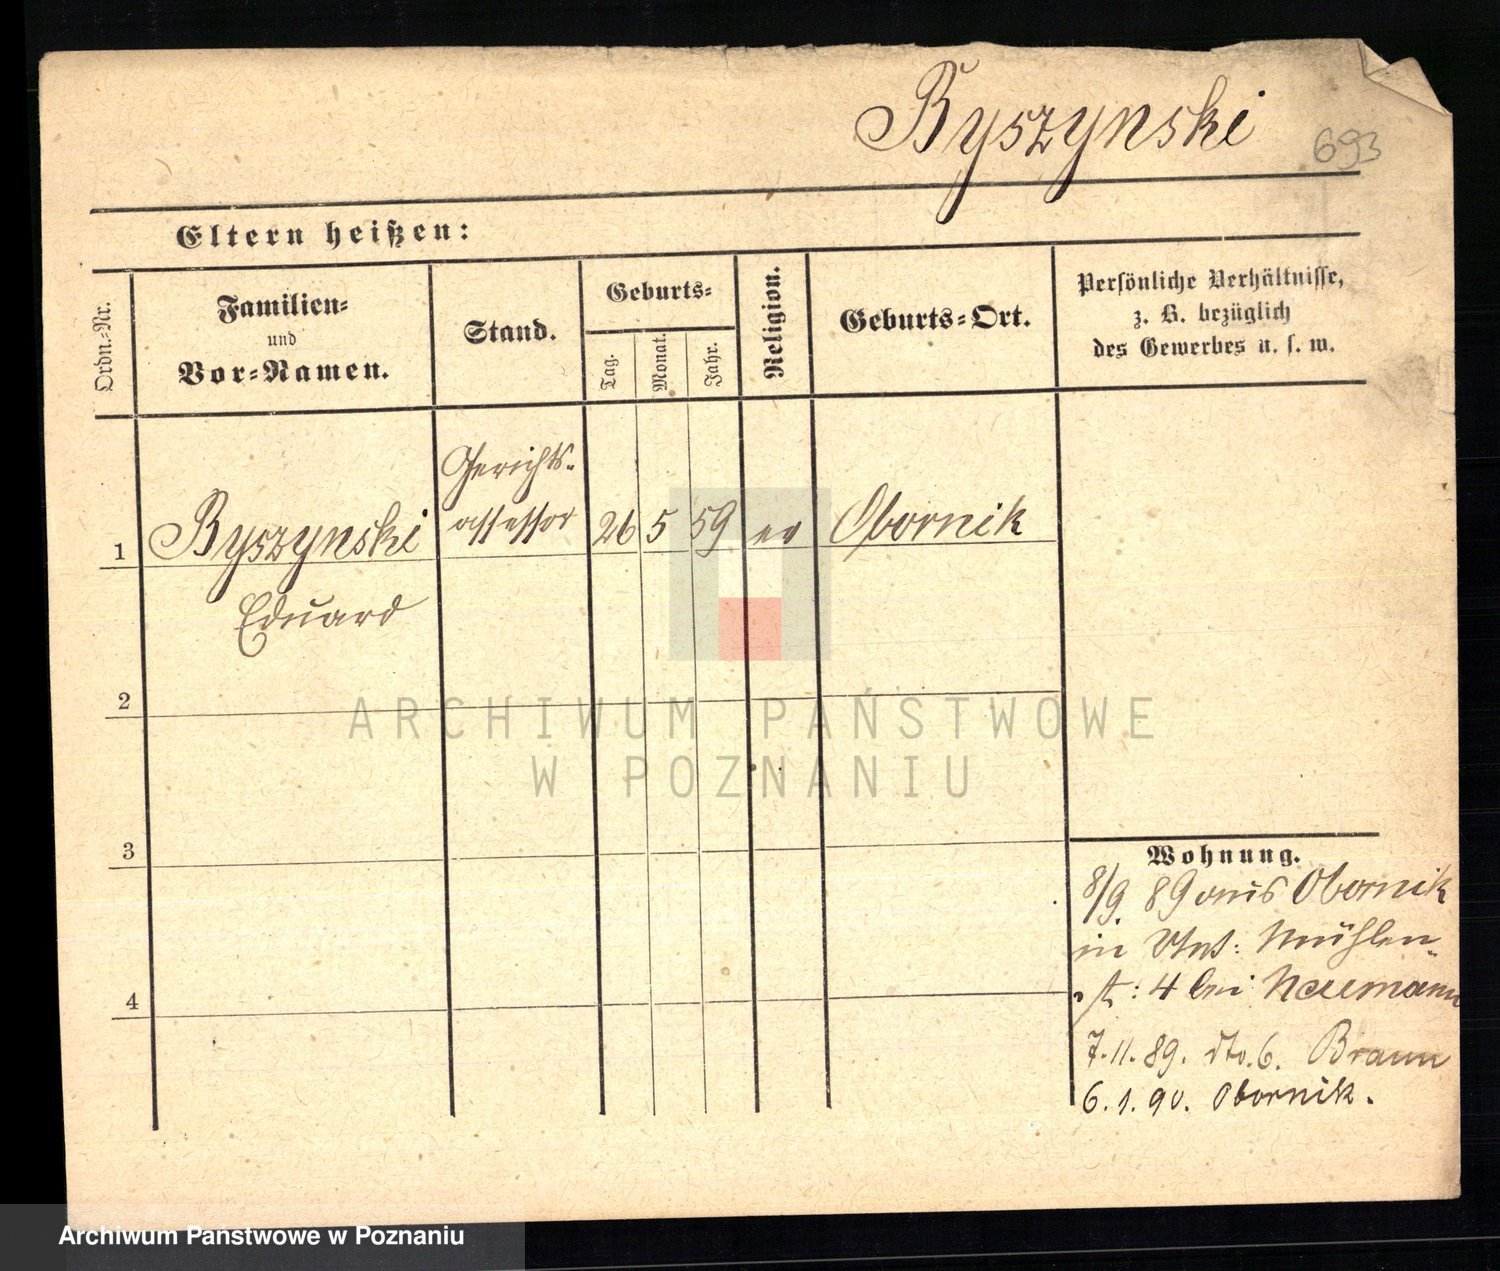 Byszynski
693
Eltern heißen:
Ordn.-Nr.
Familien-
und
Vor-Namen.
Stand.
Geburts-
Tag.
Monat.
Jahr.
Religion.
Geburts-Ort.
Persönliche Verhältnisse,
z. B. bezüglich
des Gewerbes u. s. w.
1
Byszynski
Eduard
Gerichts-
assessor
26
5
59
ev
Obornik
2
3
4
Wohnung.
8/9. 89 aus Obornik
in Mühlen-
st: 4 bei Naumann
7.11.89. dto. 6. Braun
6.1.90. Obornik.
ARCHIWUM PAŃSTWOWE
W POZNANIU
Archiwum Państwowe w Poznaniu